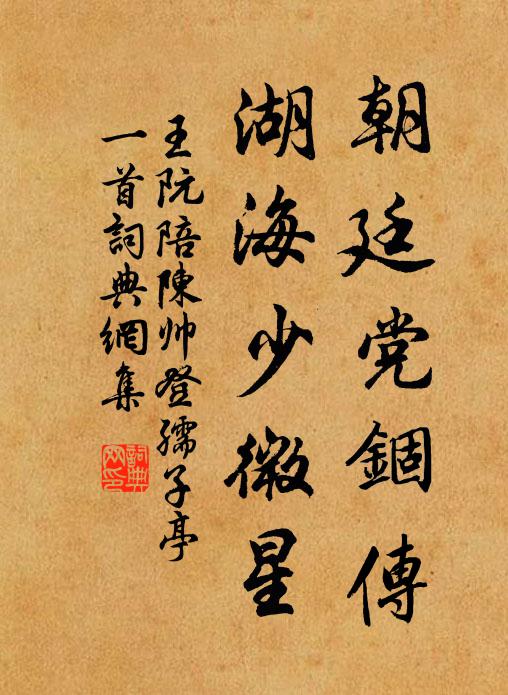 朝廷党錮傳
湖海少微星
王阮陪陳帅登孺子亭
一首詞典網集
詞典
网印